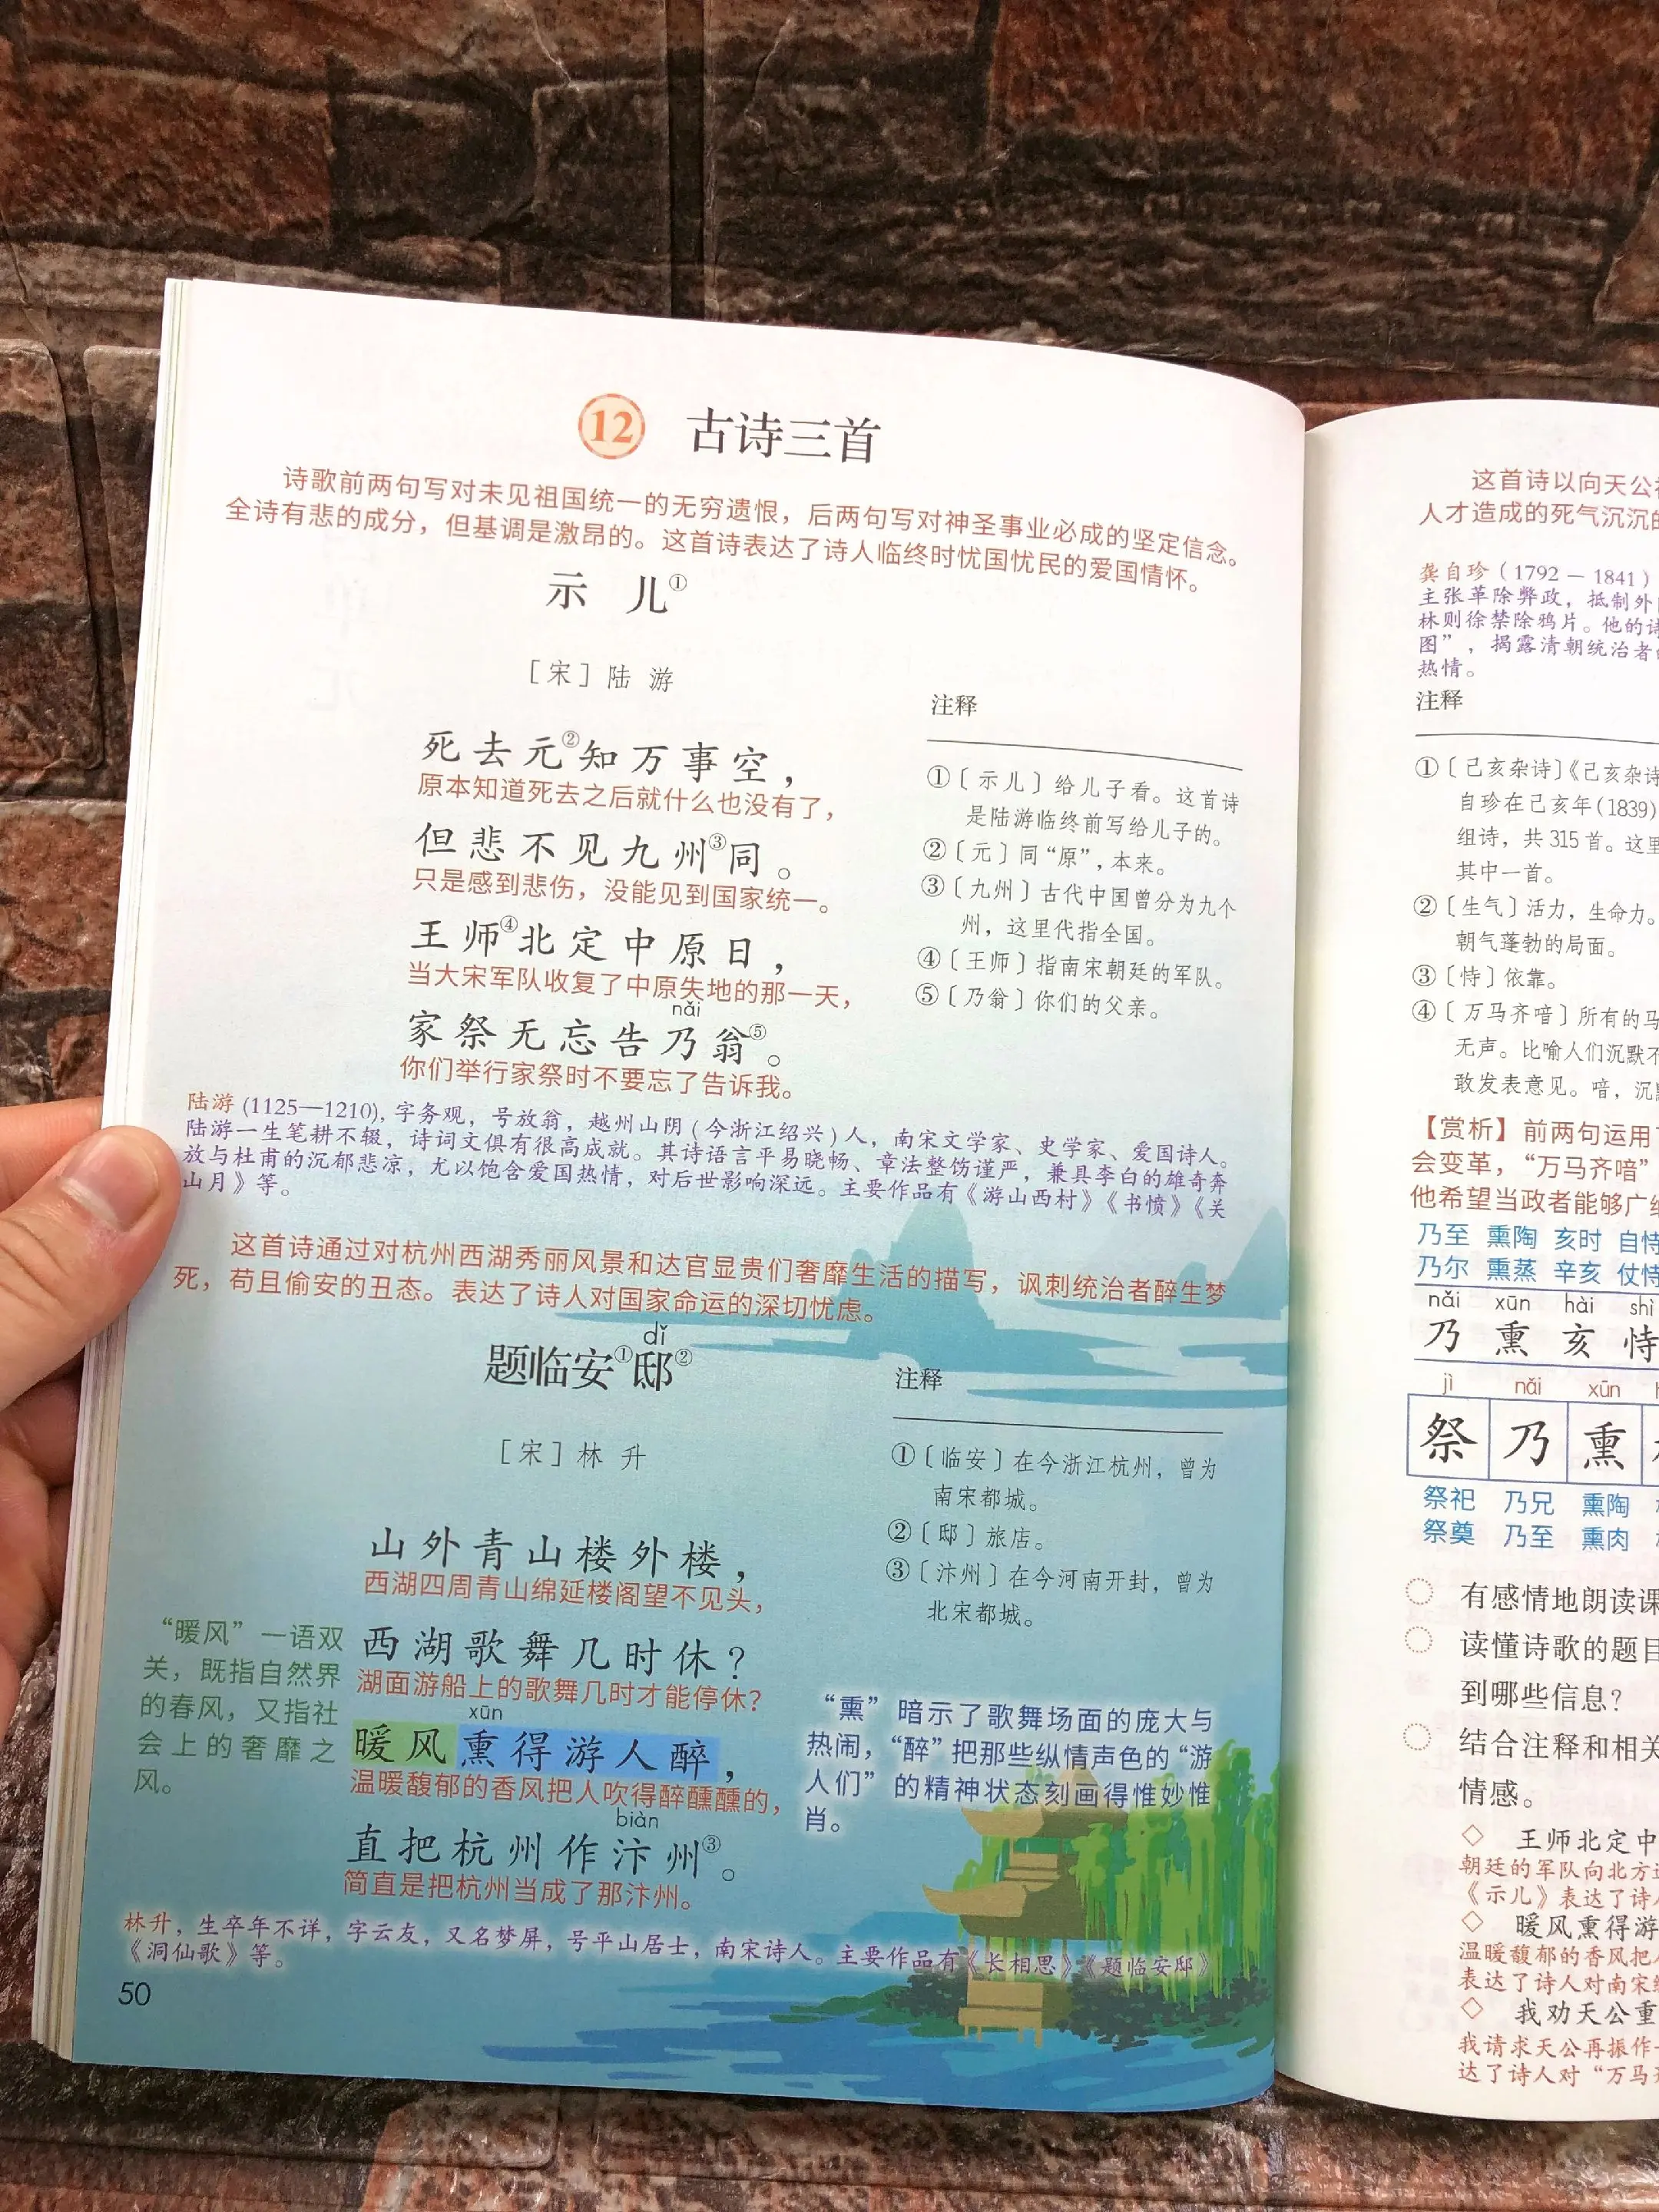 12 古诗三首
诗歌前两句写对未见祖国统一的无穷遗恨，后两句写对神圣事业必成的坚定信念。
全诗有悲的成分，但基调是激昂的。这首诗表达了诗人临终时忧国忧民的爱国情怀。
示 儿①
［宋］陆 游
死去元②知万事空，
原本知道死去之后就什么也没有了，
但悲不见九州③同。
只是感到悲伤，没能见到国家统一。
王师④北定中原日，
当大宋军队收复了中原失地的那一天，
nǎi
家祭无忘告乃翁⑤。
你们举行家祭时不要忘了告诉我。
注释
①〔示儿〕给儿子看。这首诗
是陆游临终前写给儿子的。
②〔元〕同“原”，本来。
③〔九州〕古代中国曾分为九个
州，这里代指全国。
④〔王师〕指南宋朝廷的军队。
⑤〔乃翁〕你们的父亲。
陆游 (1125—1210), 字务观，号放翁，越州山阴（今浙江绍兴）人，南宋文学家、史学家、爱国诗人。
陆游一生笔耕不辍，诗词文俱有很高成就。其诗语言平易晓畅、章法整饬谨严，兼具李白的雄奇奔
放与杜甫的沉郁悲凉，尤以饱含爱国热情，对后世影响深远。主要作品有《游山西村》《书愤》《关
山月》等。
这首诗通过对杭州西湖秀丽风景和达官显贵们奢靡生活的描写，讽刺统治者醉生梦
死，苟且偷安的丑态。表达了诗人对国家命运的深切忧虑。
dǐ
题临安①邸②
［宋］林 升
山外青山楼外楼，
西湖四周青山绵延楼阁望不见头，
西湖歌舞几时休？
湖面游船上的歌舞几时才能停休？
xūn
暖风熏得游人醉，
温暖馥郁的香风把人吹得醉醺醺的，
biàn
直把杭州作汴州③。
简直是把杭州当成了那汴州。
注释
①〔临安〕在今浙江杭州，曾为
南宋都城。
②〔邸〕旅店。
③〔汴州〕在今河南开封，曾为
北宋都城。
“暖风”一语双
关，既指自然界
的春风，又指社
会上的奢靡之
风。
“熏”暗示了歌舞场面的庞大与
热闹，“醉”把那些纵情声色的“游
人们”的精神状态刻画得惟妙惟
肖。
林升，生卒年不详，字云友，又名梦屏，号平山居士，南宋诗人。主要作品有《长相思》《题临安邸》
《洞仙歌》等。
50
这首诗以向天公
人才造成的死气沉沉的
龚自珍（1792 — 1841）
主张革除弊政，抵制外
林则徐禁除鸦片。他的诗
图”，揭露清朝统治者
热情。
注释
①〔己亥杂诗〕《己亥杂诗
自珍在己亥年(1839)
组诗，共 315 首。这里
其中一首。
②〔生气〕活力，生命力。
朝气蓬勃的局面。
③〔恃〕依靠。
④〔万马齐喑〕所有的马
无声。比喻人们沉默不
敢发表意见。喑，沉默
【赏析】前两句运用
会变革，“万马齐喑”
他希望当政者能够广
乃至 熏陶 亥时 自恃
乃尔 熏蒸 辛亥 仗恃
nǎi xūn hài shì
乃 熏 亥 恃
jì nǎi xūn
祭 乃 熏
祭祀 乃兄 熏陶
祭奠 乃至 熏肉
有感情地朗读课
读懂诗歌的题目
到哪些信息？
结合注释和相关
情感。
◇ 王师北定中
朝廷的军队向北方
《示儿》表达了诗人
◇ 暖风熏得游
温暖馥郁的香风把人
表达了诗人对南宋
◇ 我劝天公重
我请求天公再振作
达了诗人对“万马